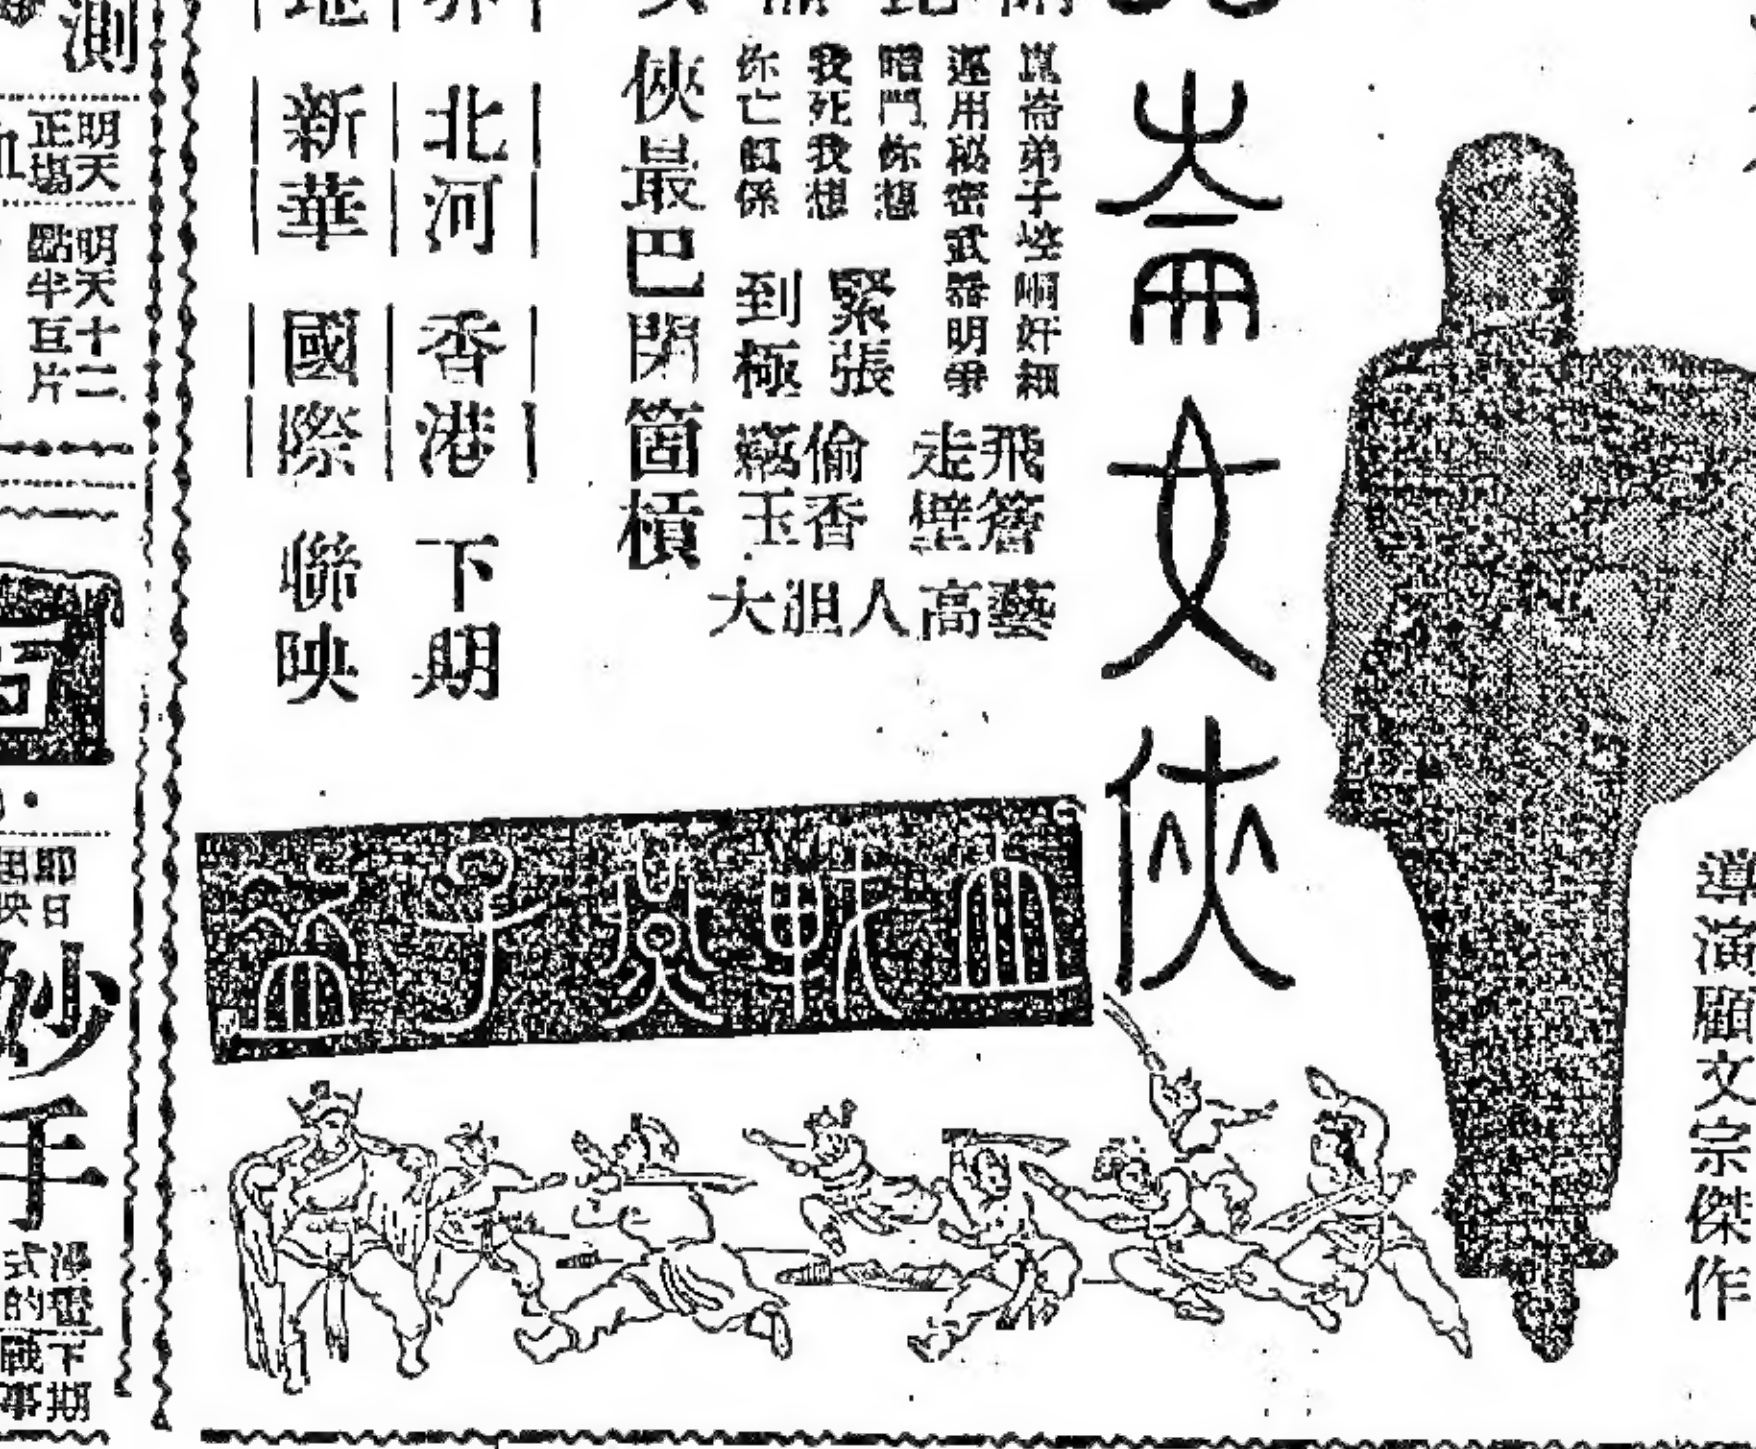 導演顧文宗傑作
崙女俠
血戰燕子盜
崑崙弟子崆峒奸細
運用秘密武器明爭
暗鬥你想
我死我想
你亡眞係
緊張
到極
飛簷
走壁
偷香
竊玉
藝高人胆大
俠最巴閉箇槓
北河
香港
下期
新華
國際
聯映
測
明天
正場
明天十二
點半亙片
即日
妙
手
下期
式的戰事